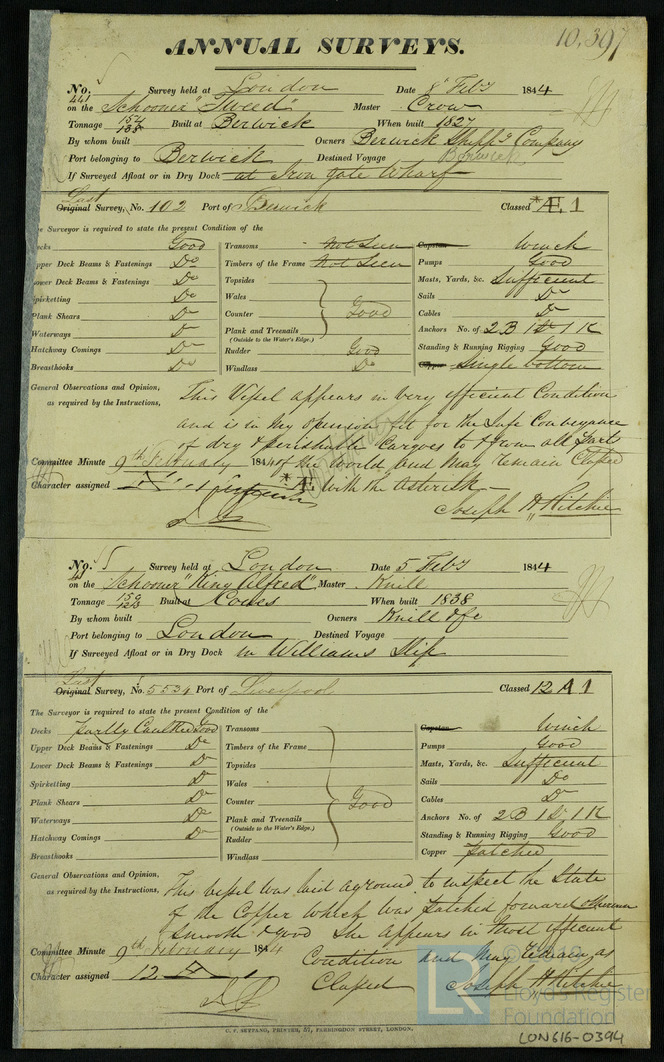 10,397
ANNUAL SURVEYS.
No. 441 Survey held at London Date 8th Feby 1844
on the Schooner "Tweed" Master Crow
Tonnage 154 138 Built at Berwick When built 1827
By whom built Owners Berwick Shippg Company
Port belonging to Berwick Destined Voyage Berwick
If Surveyed Afloat or in Dry Dock at Iron Gate Wharf
Last
Original Survey, No. 102 Port of Berwick Classed *Æ 1
The Surveyor is required to state the present Condition of the
Decks Good Transoms Not Seen Capstan Winch
Upper Deck Beams & Fastenings Do Timbers of the Frame Not Seen Pumps Good
Lower Deck Beams & Fastenings Do Topsides Masts, Yards, &c. Sufficient
Spirketting Do Wales Sails Do
Plank Shears Do Counter Good Cables Do
Waterways Do Plank and Treenails Anchors No. of 2 B 1 St 1 K
(Outside to the Water's Edge.)
Hatchway Comings Do Rudder Good Standing & Running Rigging Good
Breasthooks Do Windlass Do Single bottom
General Observations and Opinion, This Vessel appears in very efficient Condition
as required by the Instructions, and is in my Opinion fit for the Safe Conveyance
of dry & perishable Cargoes to & from all parts
Committee Minute 9th February 1844 of the World, and May remain Classed
Character assigned *Æ with the Asterisk
Joseph H Ritchie
No. Survey held at London Date 5 Feby 1844
on the Schooner "King Alfred" Master Knill
Tonnage Built at Cowes When built 1838
By whom built Owners Knill & Co
Port belonging to London Destined Voyage
If Surveyed Afloat or in Dry Dock in Williams Slip
First
Original Survey, No. 5534 Port of Liverpool Classed 12 A 1
The Surveyor is required to state the present Condition of the
Decks partly Caulked Good Transoms Capstan Winch
Upper Deck Beams & Fastenings Do Timbers of the Frame Pumps Good
Lower Deck Beams & Fastenings Do Topsides Masts, Yards, &c. Sufficient
Spirketting Do Wales Sails Do
Plank Shears Do Counter Good Cables Do
Waterways Do Plank and Treenails Anchors No. of 2 B 1 St 1 K
(Outside to the Water's Edge.)
Hatchway Comings Do Rudder Standing & Running Rigging Good
Breasthooks Windlass Copper patched
General Observations and Opinion, This vessel was laid aground to inspect the State
as required by the Instructions, of the Copper which was patched forward otherwise
smooth & good She appears in most efficient
Committee Minute 9th February 1844 Condition and May remain as
Character assigned 12 A 1 Classed Joseph H Ritchie
© 2019
LR Lloyd's Register
Foundation
C. F. SEYFANG, PRINTER, 57, FARRINGDON STREET, LONDON.
LON616-0394